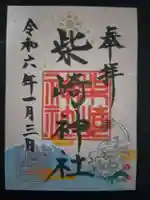 奉拝
柴崎神社
令和六年一月三日